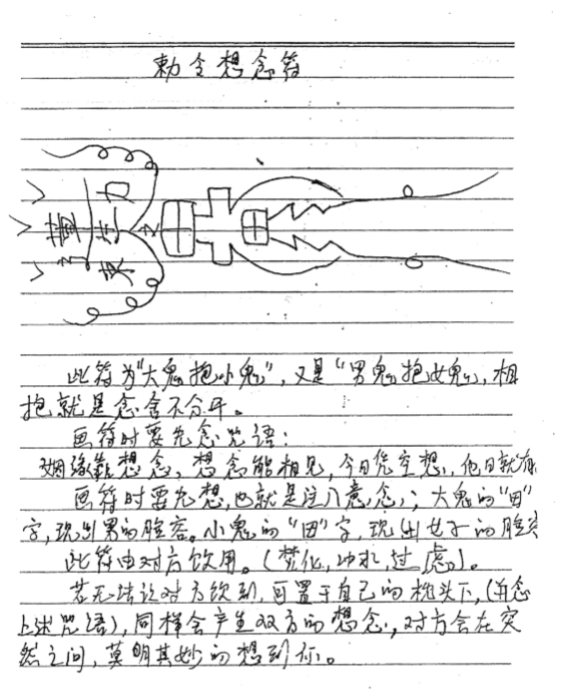 勅令想念符
此符为"大鬼抱小鬼"，又是"男鬼抱女鬼，相
抱就是念舍不分开。
画符时要先念咒语：
姻缘靠想念，想念能相见，今日凭空想，他日就有
画符时要先想，也就是注入意念，；大鬼的"田"
字，现出男的脸容。小鬼的"田"字，现出女子的脸容
此符由对方饮用。（焚化，冲水，过虑）。
若无法让对方饮到，可置于自己的枕头下，（并念
上述咒语），同样会产生双方的想念，对方会在突
然之间，莫明其妙的想到你。